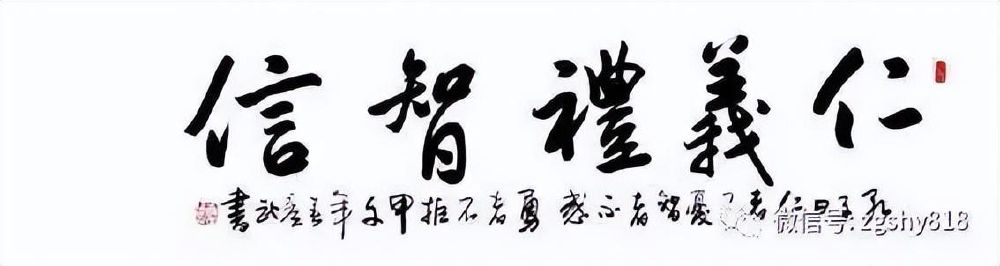 仁義禮智信
孔子曰仁者不憂智者不惑勇者不拒甲午年春書
微信号: zgshy818